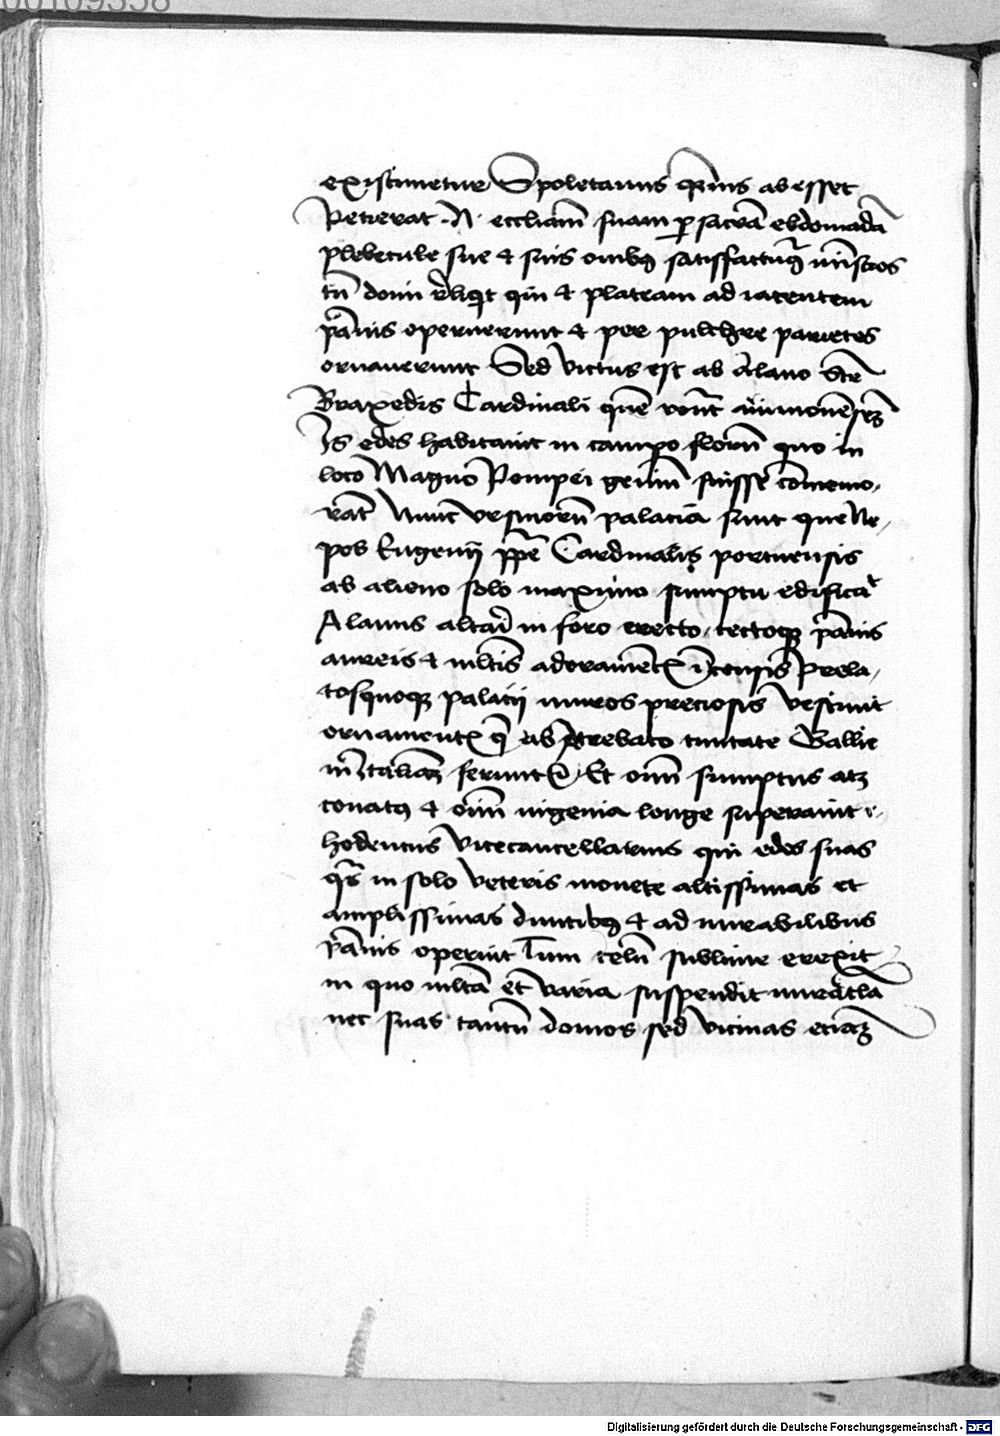 00109358
existimetur Spoletanus qͣmuis ab esset
Petierat .N. eccliam̄ suam p̱ sacrā ebdomadā
plebecule sue & suis ouibꝫ satisfacturꝰ
tn̄ domi reliq̇t qui & plateam ad iacentem
pānis operuerunt & per pulchre parietes
ornauerunt Sed victus est ab Alano Stē
Braxedis Cardinali quē vocāt auinionēsem
Is edes habitauit in campo florū quo in
loco Magnō Pompei fuisse cōmemo,
rāt Nunc vrsinorū palacia sunt que Ne,
pos Eugenij pp̄e Cardinalis portuensis
ab alieno solo maximo sumptu edificāt
Alanus altari in foro erecto, tectoqꝫ pānis
aureis & mltis adoramētꝭ īcensis Prela,
tosquoqꝫ palatij muros preciosis vestiuit
ornamentꝭ q̄ ab Atrebato ciuitate Gallie
in Italiam feruntꝭ. Et om̄i sumptus atqꝫ
conatꝰ & om̄i ingenia longe superauit r,
hodericus Vicecancellarius qui edes suas
qͣs in solo veteris monete altissimas et
amplissimas ductibꝫ & ad mirabilibus
pānis operuit Tum celū sublime erexit
in quo mltā et varia suspendit miracla
nec suas tantū domos sed vicinas eciam
Digitalisierung gefördert durch die Deutsche Forschungsgemeinschaft - DFG